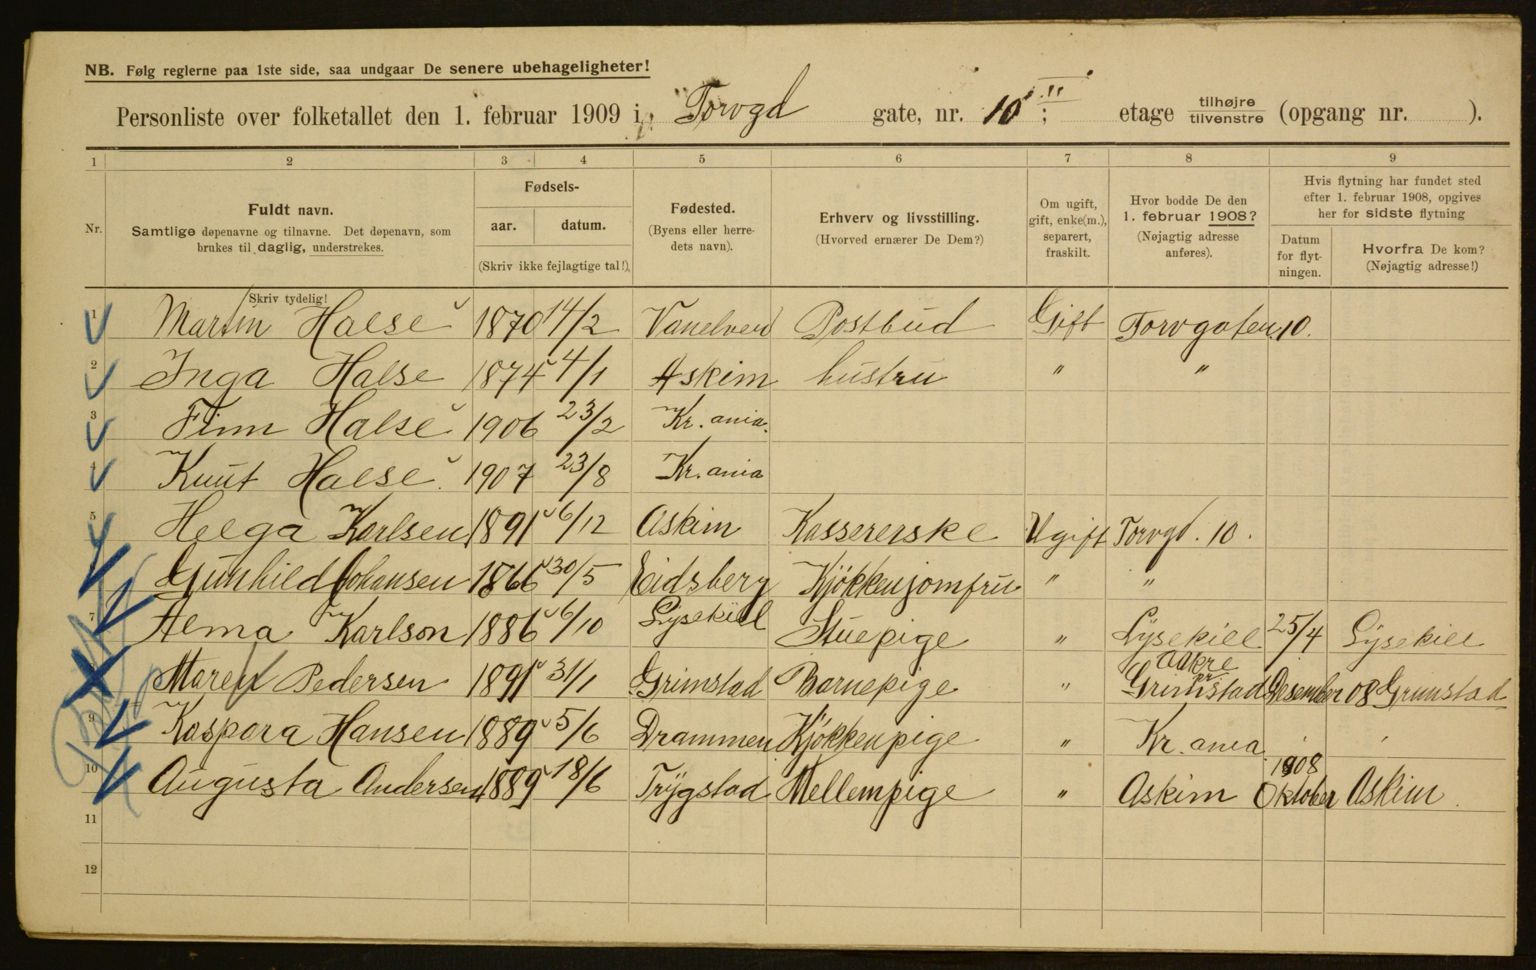 NB. Følg reglerne paa 1ste side, saa undgaar De senere ubehageligheter!
Personliste over folketallet den 1. februar 1909 i Torvgd gate, nr. 10 ; II etage tilhøjre tilvenstre (opgang nr. ).
1 2 3 4 5 6 7 8 9
Nr. Fuldt navn. Samtlige døpenavne og tilnavne. Det døpenavn, som brukes til daglig, understrekes.
Fødsels- aar. datum. (Skriv ikke fejlagtige tal!)
Fødested. (Byens eller herredets navn).
Erhverv og livsstilling. (Hvorved ernærer De Dem?)
Om ugift, gift, enke(m.), separert, fraskilt.
Hvor bodde De den 1. februar 1908? (Nøjagtig adresse anføres).
Hvis flytning har fundet sted efter 1. februar 1908, opgives her for sidste flytning
Datum for flytningen. Hvorfra De kom? (Nøjagtig adresse!)
Skriv tydelig!
1 Martin Halse 1870 14/2 Vanelven Postbud Gift Torvgaten 10.
2 Inga Halse 1874 4/1 Askim hustru " "
3 Finn Halse 1906 23/2 Kr. ania.
4 Knut Halse 1907 23/8 Kr. ania
5 Helga Karlsen 1891 6/12 Askim Kassererske Ugift Torvgd. 10.
Gunhild Johansen 1866 30/5 Eidsberg Kjøkkenjomfru " "
7 Alma Karlson 1886 6/10 Lysekiel Stuepige " Lysekiel 25/4 Lysekiel
Maren Pedersen 1891 31/1 Grimstad Barnepige " Aakre pr. Grimstad Desember 08 Grimstad
9 Kaspara Hansen 1889 5/6 Drammen Kjøkkenpige " Kr. ania
10 Augusta Andersen 1889 18/6 Trygstad Mellempige " Askim 1908 Oktober Askim.
11
12